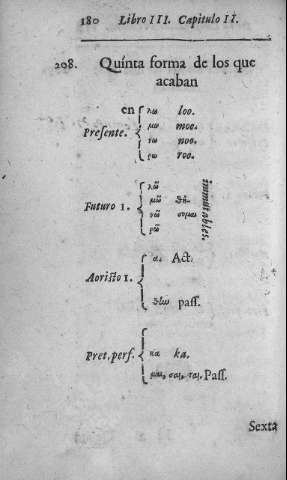 180 Libro III. Capitulo II.
208. Quínta forma de los que
acaban
en λω loo.
μω moo.
Presente.
νω noo.
ρω roo.
λῶ
μῶ
Futuro 1.
νῶ
ρῶ
immutables.
α. Act.
Aoristo 1.
pass.
Pret. perf. κα ka.
μαι, σαι, ται, Pass.
Sexta